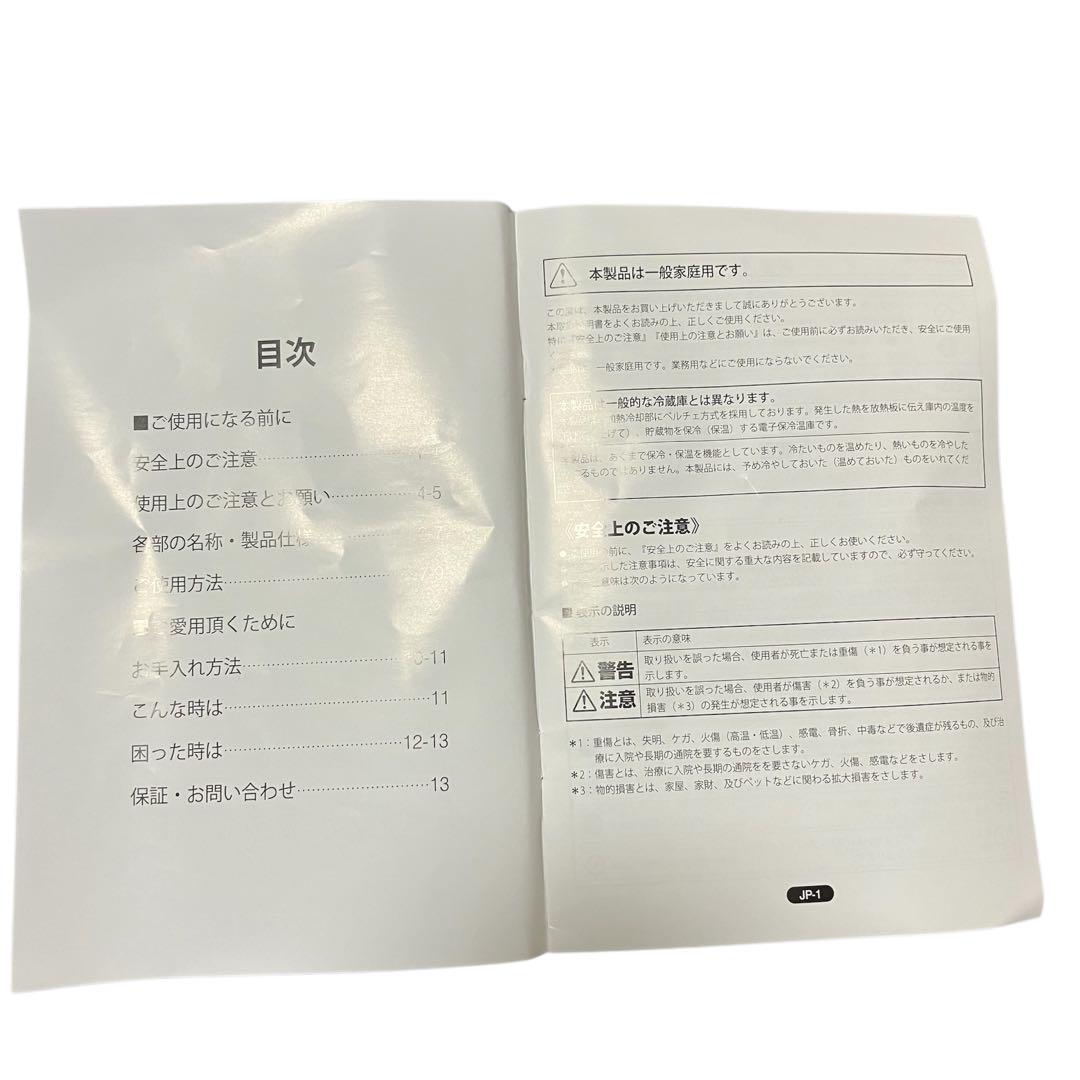 目次
■ご使用になる前に
安全上のご注意
使用上のご注意とお願い……………4-5
各部の名称・製品仕様
ご使用方法
愛用頂くために
お手入れ方法……………………10-11
こんな時は…………………………11
困った時は………………………12-13
保証・お問い合わせ………………13
本製品は一般家庭用です。
この度は、本製品をお買い上げいただきまして誠にありがとうございます。
本取 明書をよくお読みの上、正しくご使用ください。
特に『安全上のご注意』『使用上の注意とお願い』は、ご使用前に必ずお読みいただき、安全にご使用
一般家庭用です。業務用などにご使用にならないでください。
本製品は一般的な冷蔵庫とは異なります。
熱冷却部にペルチェ方式を採用しております。発生した熱を放熱板に伝え庫内の温度を
げて)、貯蔵物を保冷(保温)する電子保冷温庫です。
製品は、あくまで保冷・保温を機能としています。冷たいものを温めたり、熱いものを冷やした
るものではありません。本製品には、予め冷やしておいた(温めておいた)ものをいれてくだ
《安全上のご注意》
●ご使用の前に、『安全上のご注意』をよくお読みの上、正しくお使いください。
示した注意事項は、安全に関する重大な内容を記載していますので、必ず守ってください。
意味は次のようになっています。
■表示の説明
表示 表示の意味
警告 取り扱いを誤った場合、使用者が死亡または重傷(*1)を負う事が想定される事を
示します。
注意 取り扱いを誤った場合、使用者が傷害(*2)を負う事が想定されるか、または物的
損害(*3)の発生が想定される事を示します。
*1:重傷とは、失明、ケガ、火傷(高温・低温)、感電、骨折、中毒などで後遺症が残るもの、及び治
療に入院や長期の通院を要するものをさします。
*2:傷害とは、治療に入院や長期の通院をを要さないケガ、火傷、感電などをさします。
*3:物的損害とは、家屋、家財、及びペットなどに関わる拡大損害をさします。
JP-1